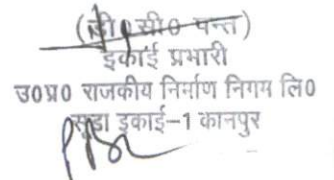 (डी०सी० पन्त)
इकाई प्रभारी
उ०प्र० राजकीय निर्माण निगम लि०
सूडा इकाई-1 कानपुर